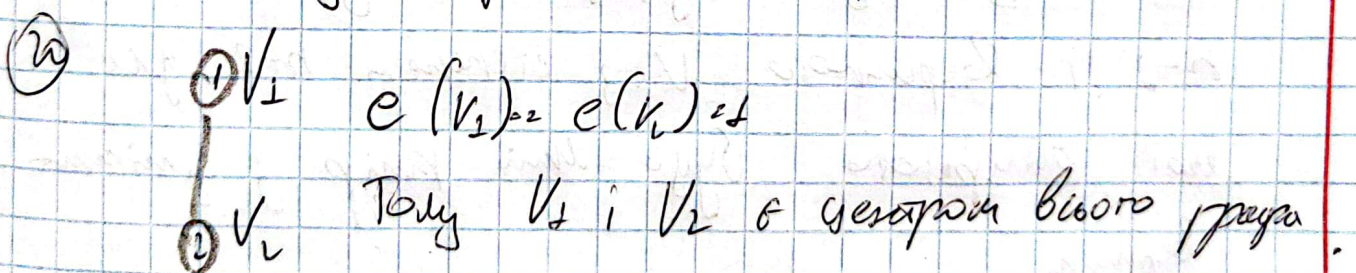 1 V1
e(V1) = e(V2) = 1
2 V2
Тому V1 і V2 є центром всього графа.